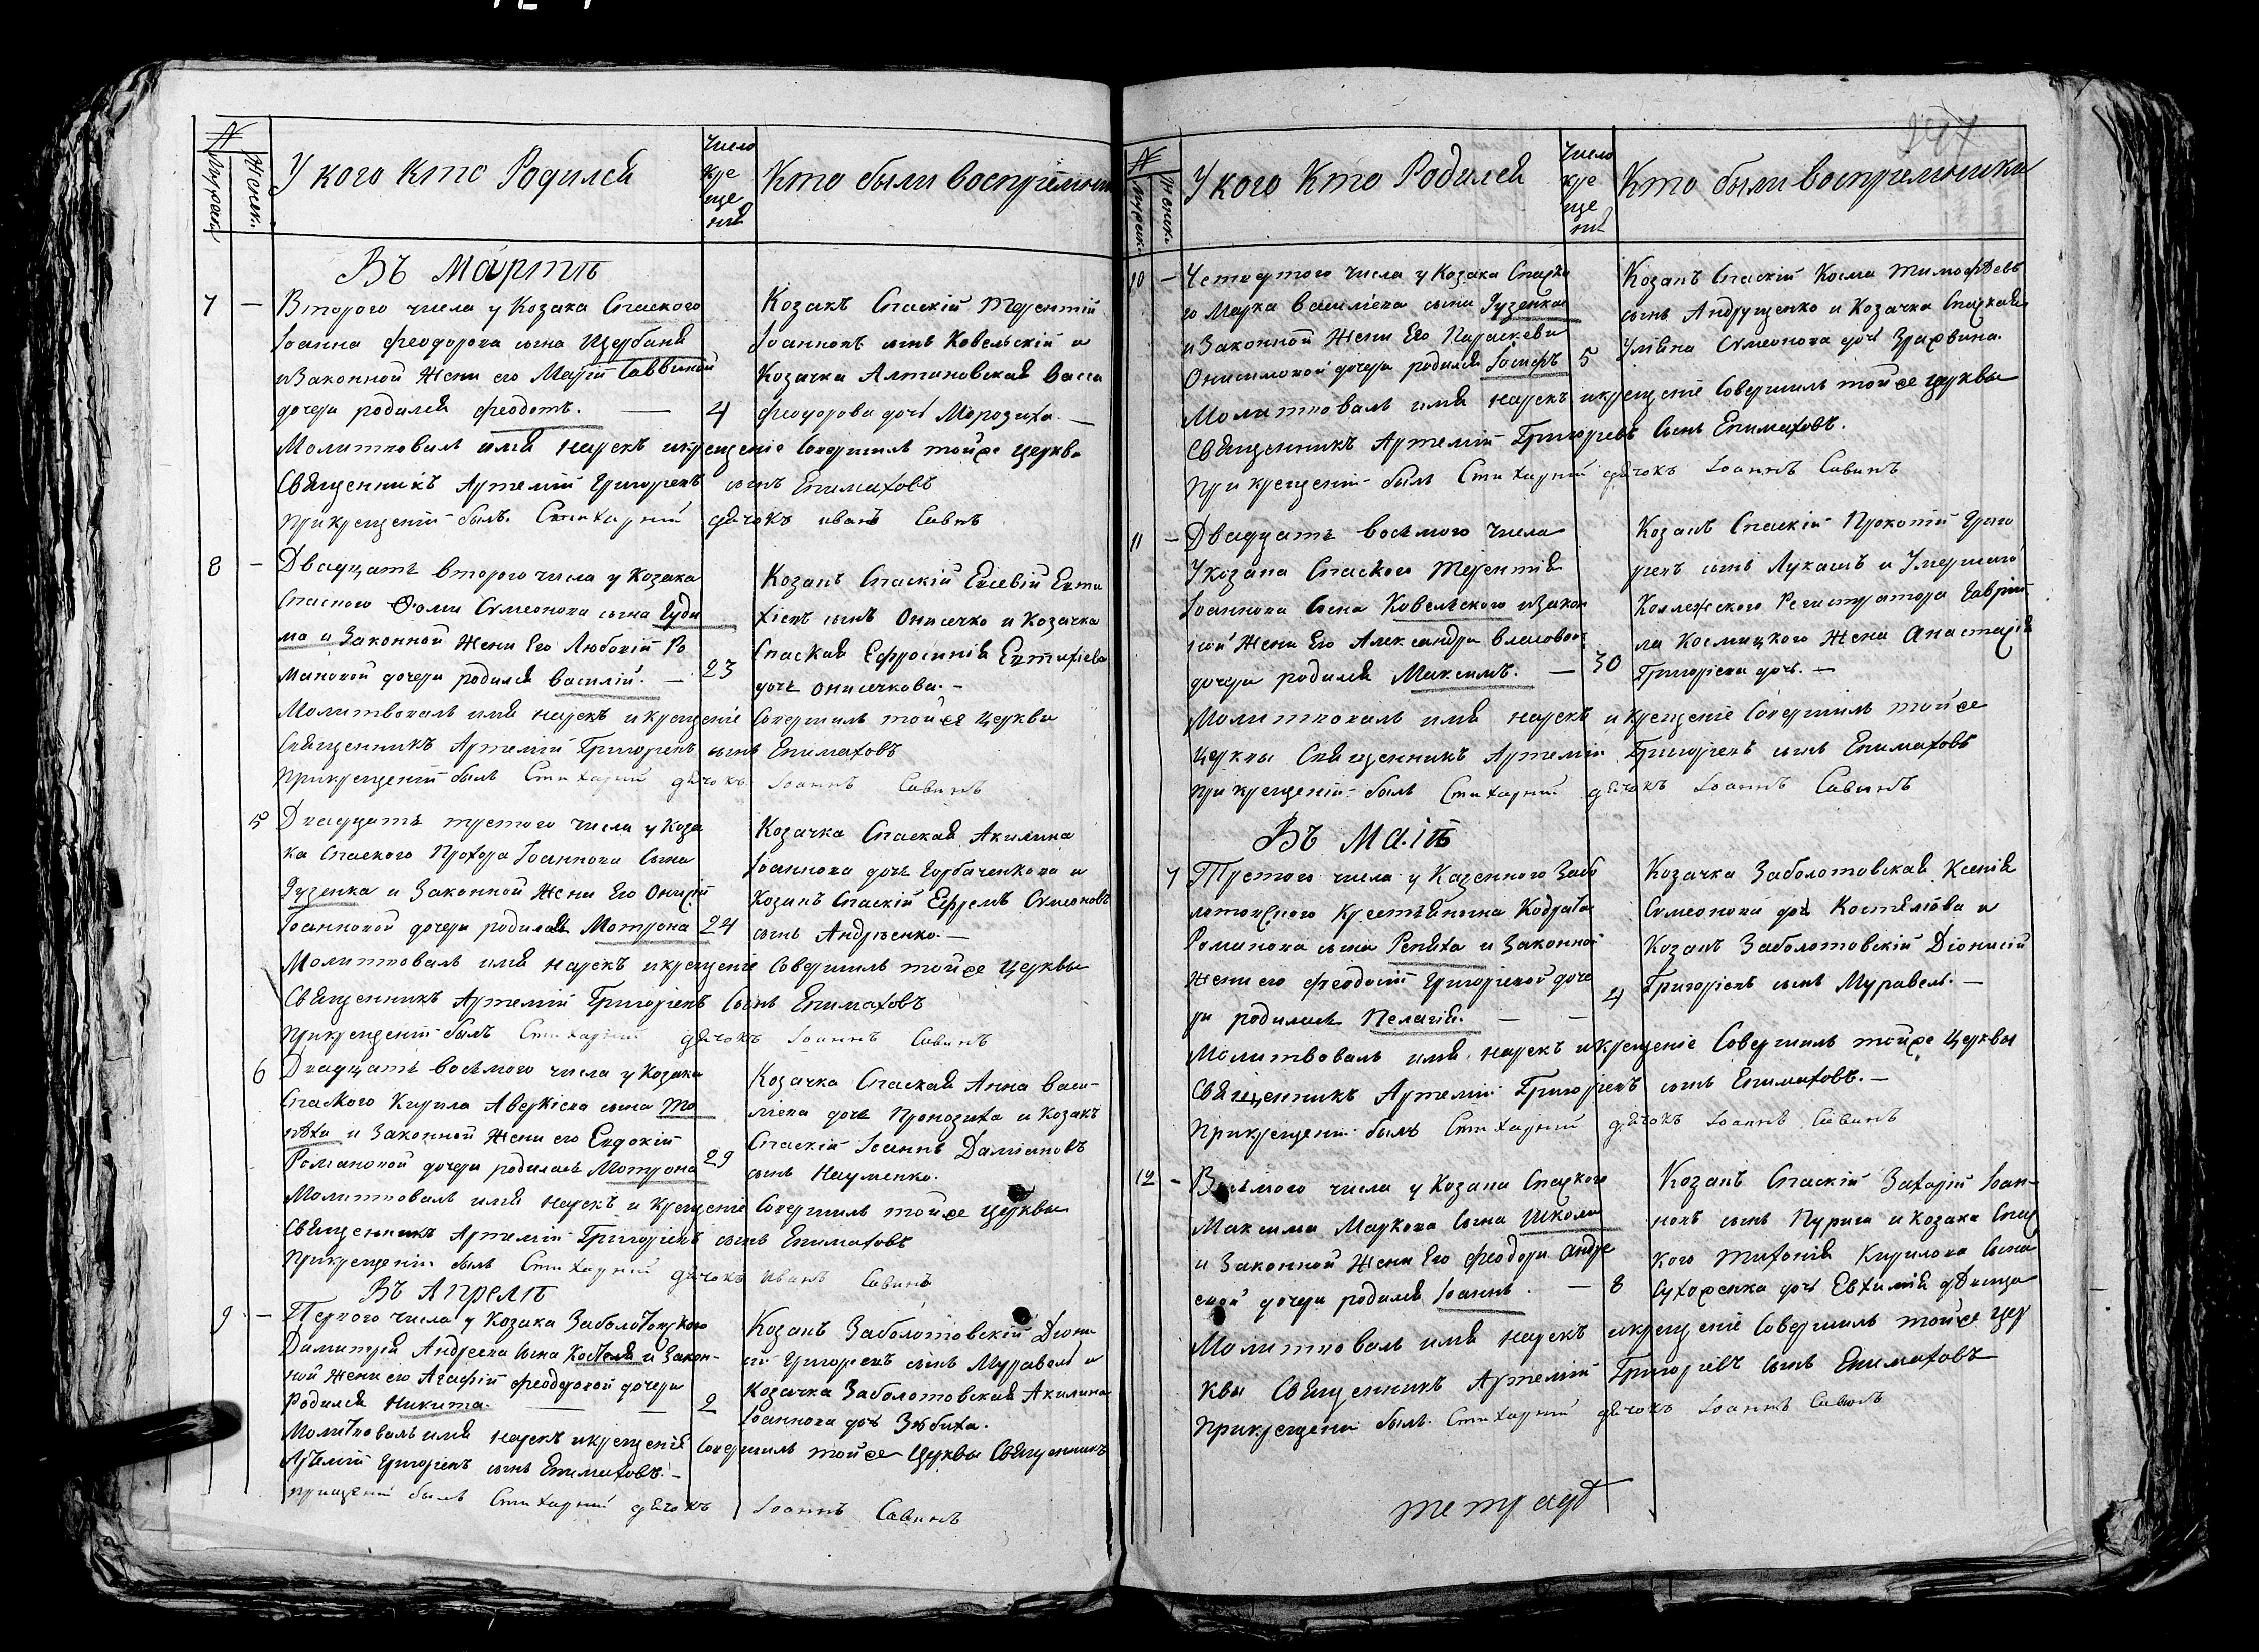 №
Мужеск
Женск.
У кого кто Родился
Число
кре
ще
нія
Кто были воспріемники
Въ Мартѣ
7 — Второго числа у Козака Спаского
Іоанна Феодорова сына Щербаня
и Законной Жени его Маріи Саввиной
дочери родился Феодотъ. — 4
Козакъ Спаскій Терентій
Іоанновъ сынъ Ковельскій и
Козачка Алтиновская Васса
Феодорова дочь Морозиха. —
Молитвовалъ имя нарекъ и крещеніе Совершилъ тойже церкви
Священникъ Артемій Григоріевъ сынъ Епимаховъ
При крещеніи былъ Стихарній дячокъ иванъ Савинъ
8 — Двадцать второго числа у Козака
Спаского Фоми Сѵмеонова сына Гуди
ма и Законной Жени Его Любовій Ро
мановой дочери родился василій. — 23
Козакъ Спаскій Евсевій Евти
хіевъ сынъ Онисечко и Козачка
Спаская Ефросинія Евтихіева
дочь Онисечкова. —
Молитвовалъ имя нарекъ и крещеніе Совершилъ тойже церкви
Священникъ Артемій Григоріевъ сынъ Епимаховъ
При крещеніи былъ Стихарній дячокъ Іоаннъ Савинъ
5 Двадцать третого числа у Коза
ка Спаского Прохора Іоаннова Сына
Гузенка и Законной Жени Его Онисіи
Іоанновой дочери родилась Мотрона 24
Козачка Спаская Акилина
Іоаннова дочь Горбаченкова и
Козакъ Спаскій Ефремъ Сѵмеоновъ
сынъ Андрѣенко. —
Молитвовалъ имя нарекъ и крещеніе Совершилъ тойже церкви
Священникъ Артемій Григоріевъ Сынъ Епимаховъ
При крещеніи былъ Стихарній дячокъ Іоаннъ Савинъ
6 Двадцать восьмого числа у Козака
Спаского Кирила Аверкіева сына
и Законной Жени его Евдокіи
Романовой дочери родилась Мотрона 29
Козачка Спаская Анна Васи-
ліева дочь Пронозиха и Козакъ
Спаскій Іоаннъ Даміановъ
сынъ Науменко.
Молитвовалъ имя нарекъ и крещеніе Совершилъ тойже церкви
Священникъ Артемій Григоріевъ сынъ Епимаховъ
При крещеніи былъ Стихарній дячокъ иванъ Савинъ
Въ Апрелѣ
9 — Первого числа у Козака Заболотовского
Димитрія Андреева Сына Костеля и Закон-
ной Жени его Агафіи Феодоровой дочери
Родился Никита. — 2
Козакъ Заболотовскій Діони
сій Григоріевъ сынъ Муравель и
Козачка Заболотовская Акилина
Іоаннова дочь Зюбиха.
Молитвовалъ имя нарекъ и крещеніе Совершилъ тойже Церкви Священникъ
Артемій Григоріевъ сынъ Епимаховъ. —
былъ Стихарній дячокъ Іоаннъ Савинъ
№
Мужеск.
Женск.
У кого Кто Родился
Число
кре
ще
нія
Кто были воспріемники
10 — Четвертого числа у Козака Спаско
го Марка Василіева сына Гузенка
и Законной Жени Его Параскеви
Онисимовой дочери родился Іосифъ 5
Козакъ Спаскій Косма Тимофѣевъ
сынъ Андрущенко и Козачка Спаская
Уліяна Сѵмеонова дочь
Молитвовалъ имя нарекъ и крещеніе Совершилъ тойже церкви
Священникъ Артемій Григоріевъ Сынъ Епимаховъ.
При крещеніи былъ Стихарній дячокъ Іоаннъ Савинъ
11 — Двадцать восьмого числа
У козака Спаского Терентія
Іоаннова Сына Ковельского и Закон
ной Жени Его Александри Власовои
дочери родился Максимъ. — 30
Козакъ Спаскій Прокопій Григо
ріевъ сынъ Лукашъ и Умершаго
Коллежского Регистратора Гаврии
ла Космицкого Жена Анастасія
Григоріева дочь. —
Молитвовалъ имя нарекъ и крещеніе Совершилъ тойже
церкви Священникъ Артемій Григоріевъ сынъ Епимаховъ
При крещеніи былъ Стихарній дячокъ Іоаннъ Савинъ
Въ Маіѣ
7 Третого числа у Казенного Забо
лотовского Крестьянина Кодрата
Романова сына Репяха и Законной
Жени его Феодосіи Григоріевой доче
ри родилась Пелагія. — — 4
Козачка Заболотовская Ксенія
Сѵмеонова дочь Костялова и
Козакъ Заболотовскій Діонисій
Григоріевъ сынъ Муравель. —
Молитвовалъ имя нарекъ и крещеніе Совершилъ тойже Церкви
Священникъ Артемій Григоріевъ сынъ Епимаховъ. —
При крещеніи былъ Стихарній дячокъ Іоаннъ Савинъ
12 — Восьмого числа у Козака Спаского
Максима Маркова Сына Школи
и Законной Жени Его Феодори Андре
евой дочери родился Іоаннъ. — 8
Козакъ Спаскій Захарій Іоан-
новъ сынъ Пурига и Козака Спас
кого Тихонія Кирилова Сына
Сухоженка дочь Евхимія дѣвица
Молитвовалъ имя нарекъ и крещеніе Совершилъ тойже Цер
кви Священникъ Артемій Григоріевъ Сынъ Епимаховъ
При крещеніи былъ Стихарній дячокъ Іоаннъ Савинъ